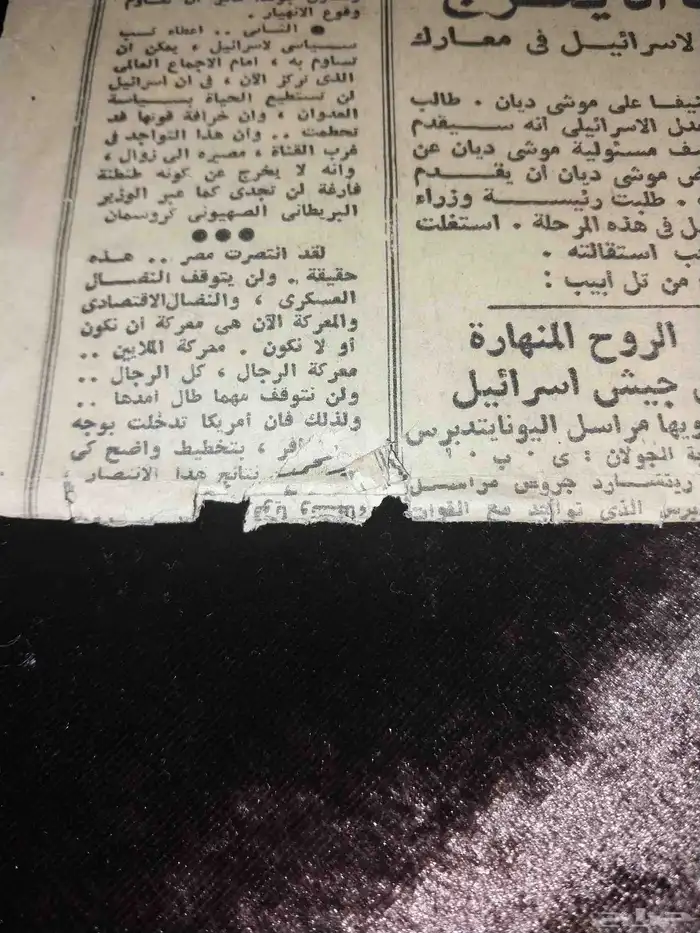 وقوع الانهيار .
● الثاني .. اعطاء كسب
سياسي لاسرائيل ، يمكن ان
تساوم به ، امام الاجماع العالمي
الذى تركز الآن ، في ان اسرائيل
لن تستطيع الحياة بسياسة
العدوان ، وان خرافة قوتها قد
تحطمت .. وان هذا التواجد في
غرب القناة ، مصيره الى زوال ،
وانه لا يخرج عن كونه طنطنة
فارغة لن تجدى كما عبر الوزير
البريطانى الصهيونى كروسمان
●●●
لقد انتصرت مصر .. هذه
حقيقة .. ولن يتوقف النضال
العسكرى ، والنضال الاقتصادى
والمعركة الآن هى معركة أن نكون
أو لا نكون . معركة الملايين ..
معركة الرجال ، كل الرجال ..
ولن نتوقف مهما طال أمدها ..
ولذلك فان أمريكا تدخلت بوجه
سافر ، بتخطيط واضح كى
نتائج هذا الانتصار
لاسرائيل فى معارك
على موشى ديان . طالب
الاسرائيلى انه سيقدم
مسئولية موشى ديان عن
موشى ديان أن يقدم
. طلبت رئيسة وزراء
فى هذه المرحلة . استغلت
استقالته .
من تل أبيب :
الروح المنهارة
جيش اسرائيل
مراسل اليونايتدبرس
الجولان : ى . ب .
ريتشارد جروس مراسل
برس الذى تواجد مع القوات
حراج